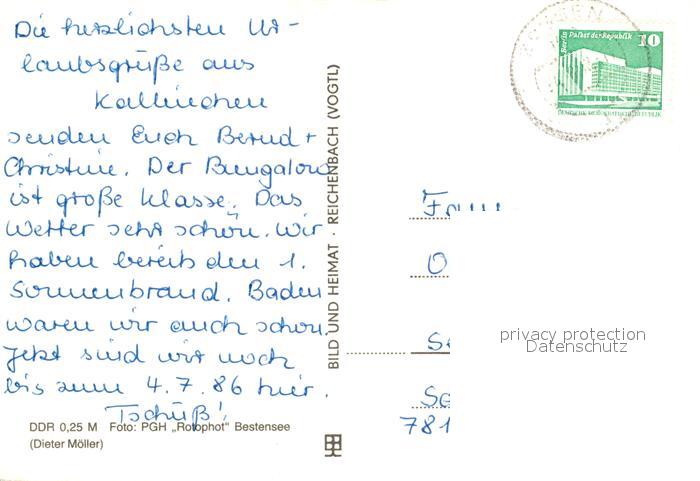 Die herzlichsten Ur-
laubsgrüße aus
Kallinchen
senden Euch Bernd +
Christine. Der Bungalow
ist große Klasse. Das
Wetter sehr schön. Wir
haben bereits den 1.
Sonnenbrand. Baden
waren wir auch schon.
Jetzt sind wir noch
bis zum 4.7.86 hier.
Tschüß!
DDR 0,25 M Foto: PGH „Rotophot" Bestensee
(Dieter Möller)
BILD UND HEIMAT · REICHENBACH (VOGTL)
Berlin Palast der Republik 10
DEUTSCHE DEMOKRATISCHE REPUBLIK
O
S
781
privacy protection
Datenschutz